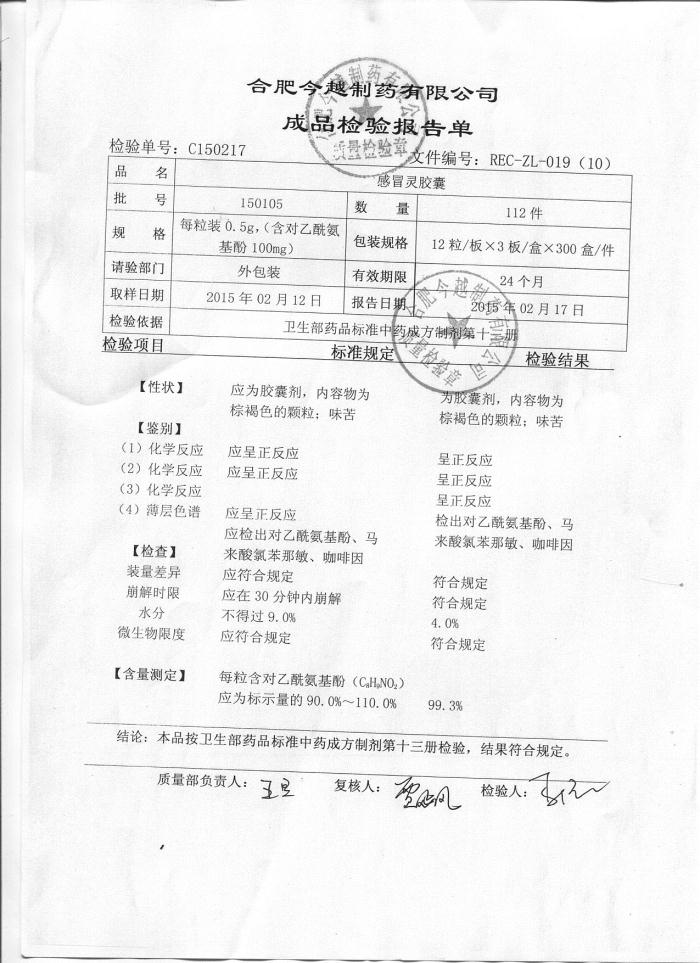 合肥今越制药有限公司
成品检验报告单
合肥今越制药有限公司
质量检验章
检验单号：C150217 文件编号：REC-ZL-019（10）
品 名 感冒灵胶囊
批 号 150105 数 量 112 件
规 格 每粒装 0.5g，（含对乙酰氨
基酚 100mg） 包装规格 12 粒/板×3 板/盒×300 盒/件
请验部门 外包装 有效期限 24 个月
取样日期 2015 年 02 月 12 日 报告日期 2015 年 02 月 17 日
检验依据 卫生部药品标准中药成方制剂第十三册
合肥今越制药有限公司
质量检验章
检验项目 标准规定 检验结果
【性状】 应为胶囊剂，内容物为 为胶囊剂，内容物为
棕褐色的颗粒；味苦 棕褐色的颗粒；味苦
【鉴别】
（1）化学反应 应呈正反应 呈正反应
（2）化学反应 应呈正反应 呈正反应
（3）化学反应 呈正反应
（4）薄层色谱 应呈正反应 检出对乙酰氨基酚、马
应检出对乙酰氨基酚、马 来酸氯苯那敏、咖啡因
【检查】 来酸氯苯那敏、咖啡因
装量差异 应符合规定 符合规定
崩解时限 应在 30 分钟内崩解 符合规定
水分 不得过 9.0% 4.0%
微生物限度 应符合规定 符合规定
【含量测定】 每粒含对乙酰氨基酚（C₈H₉NO₂）
应为标示量的 90.0%～110.0% 99.3%
结论：本品按卫生部药品标准中药成方制剂第十三册检验，结果符合规定。
质量部负责人： 复核人： 检验人：